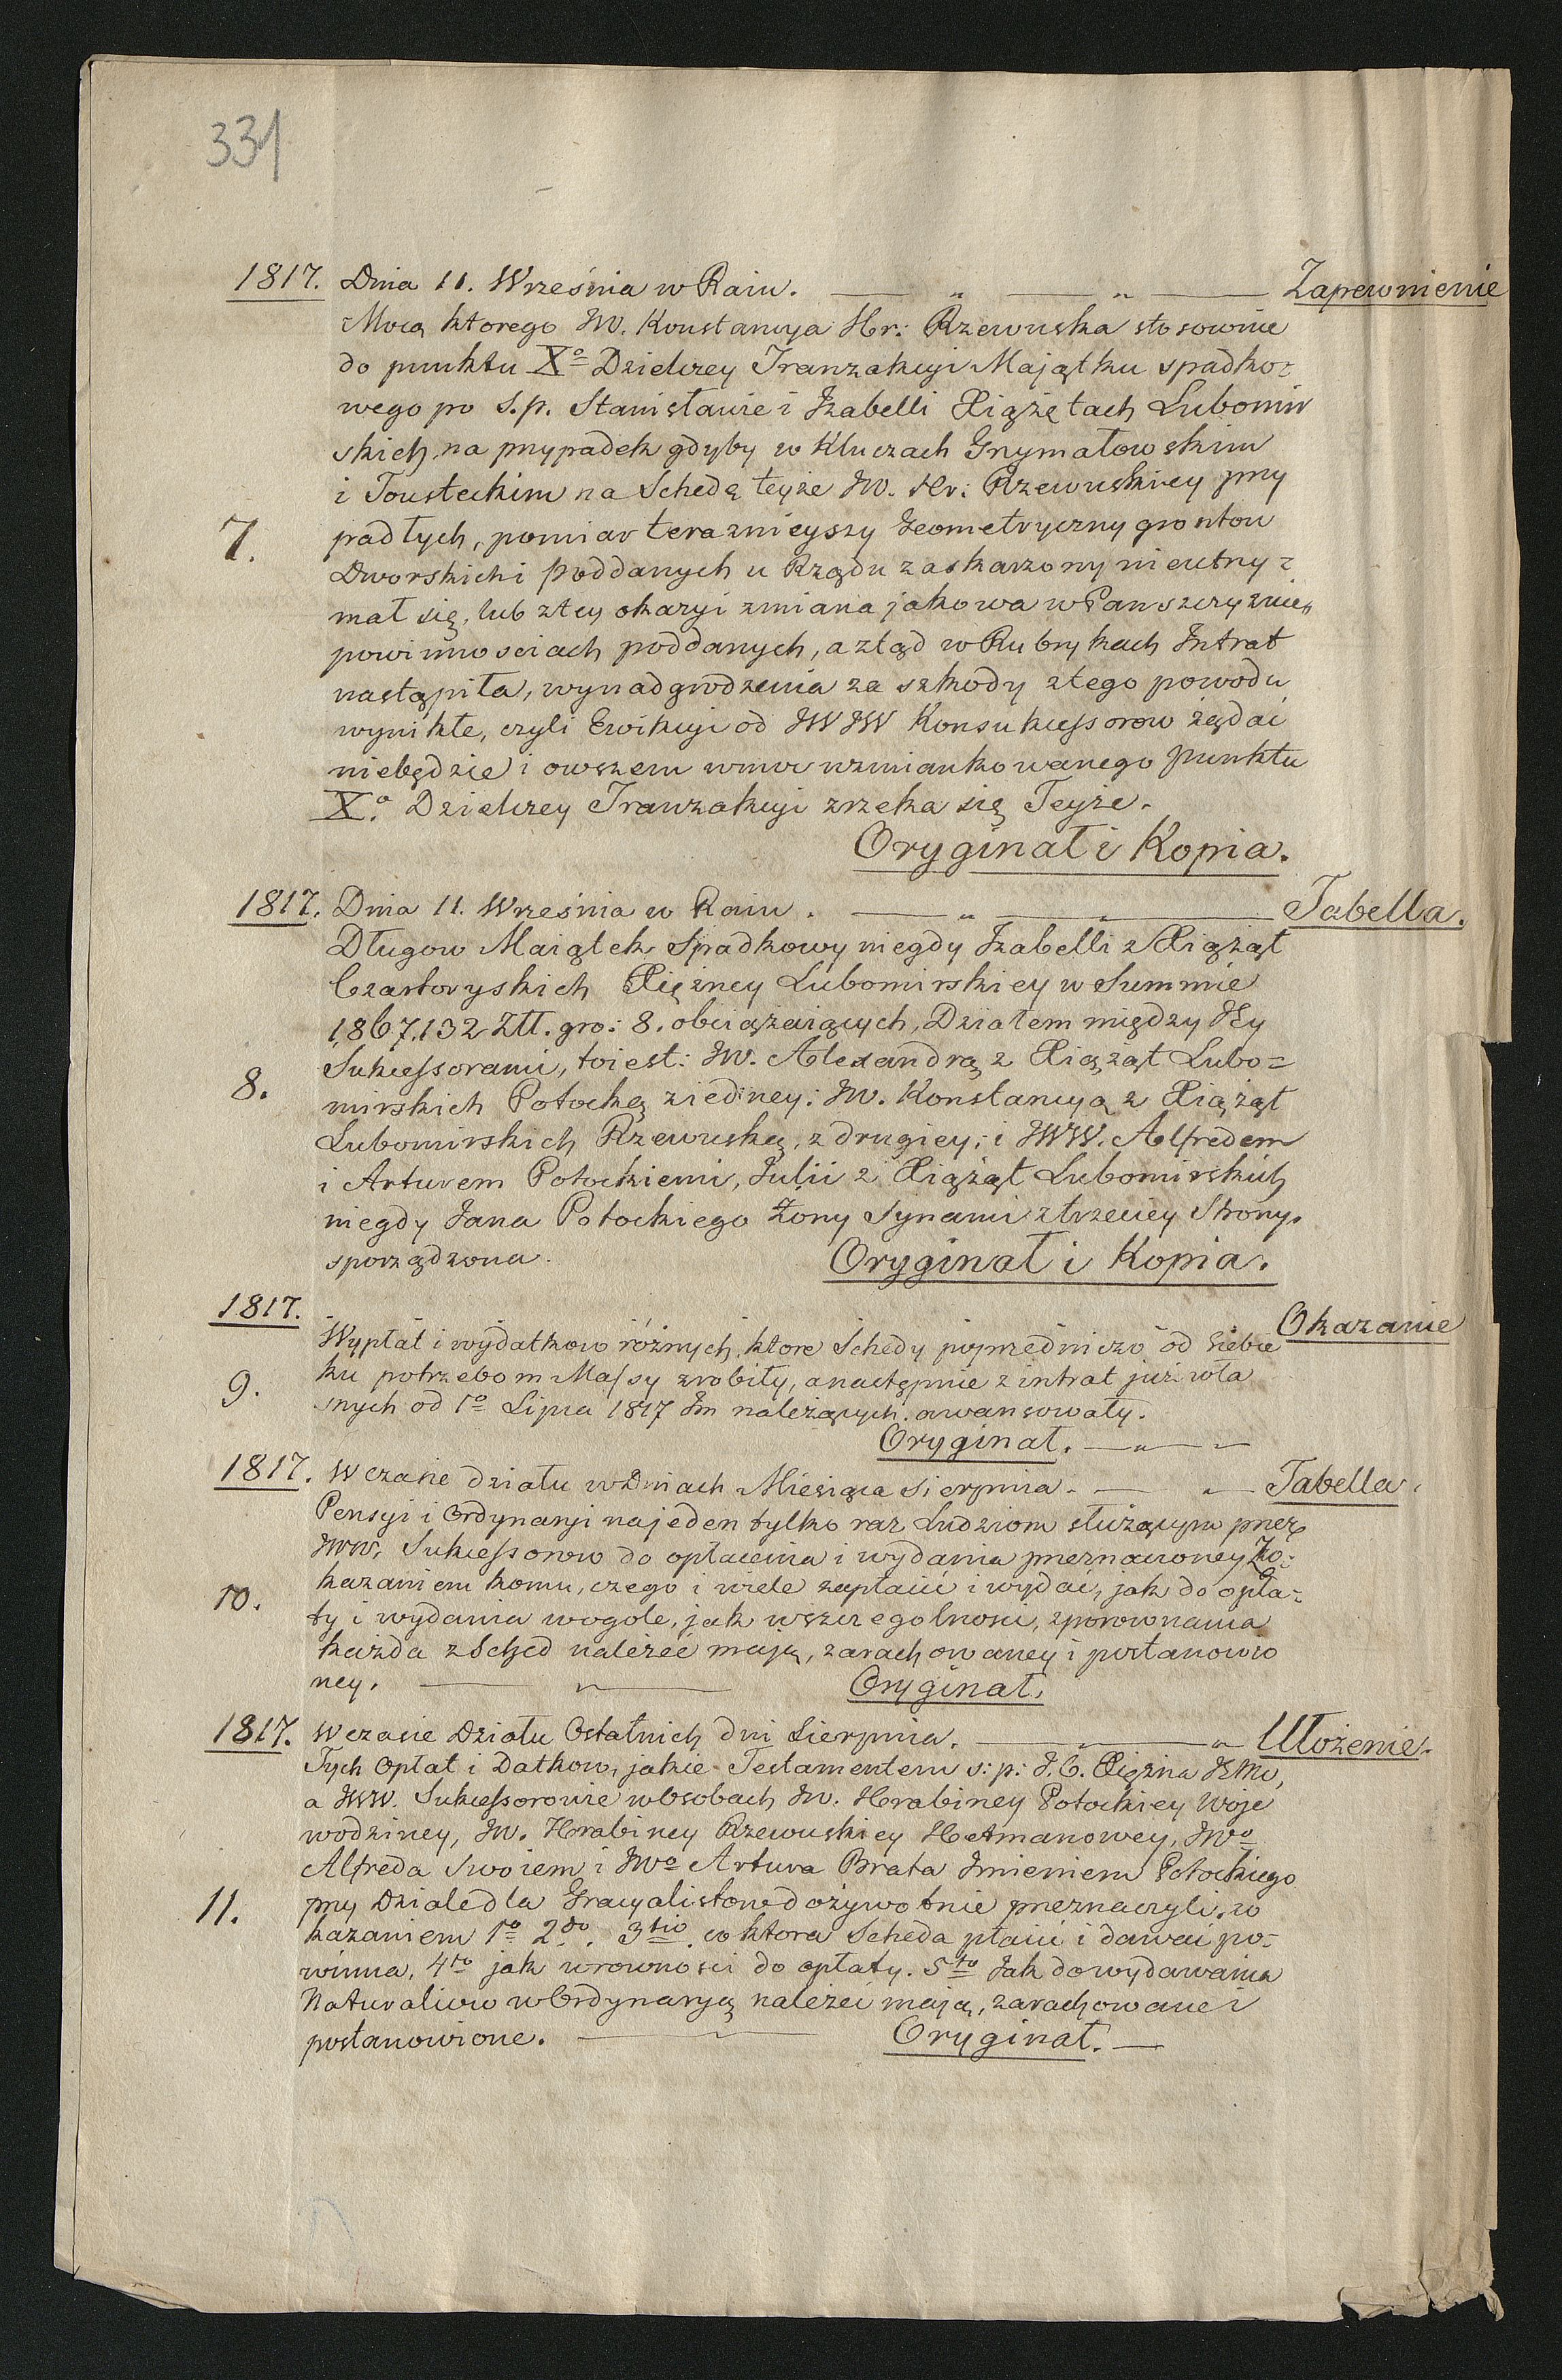 331
1817. Dnia 11. Września w Raiu. — „ — „ — Zapewnienie
Mocą ktorego JW. Konstancya Hr: Rzewuska stosownie
do punktu X° Dzielczey Tranzakcyi Maiątku spadko=
wego po s.p. Stanisławie i Izabelli Xiążętach Lubomir
skich, na przypadek gdyby w Kluczach Grzymałowskim
i Tousteckim na Schedę teyże JW. Hr: Rzewuskiey przy
padłych, pomiar teraznieyszy Geometryczny grontow
7.
Dworskich i poddanych u Rządu zaskarzony nieutrzy=
mał się, lub z tey okazyi zmiana jakowa w Panszczyznie„
powinnosciach poddanych, a ztąd w Rubrykach Intrat
nastąpiła, wynadgrodzenia za szkody z tego powodu
wynikłe, czyli Ewikcyi od JWJW Konsukcessorow żądać
niebędzie i owszem wmoc wzmiankowanego punktu
X.° Dzielczey Tranzakcyi zrzeka się Teyże.
Oryginał i Kopia.
1817. Dnia 11. Września w Raiu. — „ — „ — Tabella.
Długow Maiątek Spadkowy niegdy Izabelli z Xiążąt
Czartoryskich Xiężney Lubomirskiey w Summie
1,867,132 Złł. gro: 8. obciążaiących, Działem między Jey
Sukcessorami, toiest: JW. Alexandrą z Xiążąt Lubo=
8.
mirskich Potocką ziedney: JW. Konstancyą z Xiążąt
Lubomirskich Rzewuską, z drugiey; i JWW. Alfredem
i Arturem Potockiemi, Julii z Xiążąt Lubomirskich
niegdy Jana Potockiego Żony Synami ztrzeciey Strony.
sporządzona. Oryginał i Kopia.
1817. Okazanie
Wypłat i wydatkow różnych, ktore Schedy poprzedniczo od siebie
ku potrzebom Massy zrobiły, a następnie z intrat już wła
9.
snych od 1° Lipca 1817 Im należących, awansowały.
Oryginał. — „ —
1817. W czasie działu w Dniach Miesiąca Sierpnia. — „ — Tabella.
Pensyi i Ordynaryi na jeden tylko raz Ludziom służącym przez
JWW. Sukcessorow do opłacenia i wydania przeznaczoney Zo=
kazaniem komu, czego i wiele zapłacić i wydać, jak do opła=
10.
ty i wydania wogole, jak wszczegolnosci, zporownania
każda z Sched należeć mają, zarachowaney i postanowio
ney. — „ — Oryginał.
1817. W czasie Działu Ostatnich dni Sierpnia. — „ — „ Ułożenie.
Tych Opłat i Datkow, jakie Testamentem s: p: J.O. Xiężna JMc,
a JWW. Sukcessorowie w Osobach JW. Hrabiney Potockiey Woje
wodziney, JW. Hrabiney Rzewuskiey Hetmanowey, JWo
Alfreda Swoiem i JWo Artura Brata Imieniem Potockiego
11.
przy Dziale dla Gracyalistow dożywotnie przeznaczyli, zo
kazaniem 1° 2do. 3tio. co ktora Scheda płacić i dawać po=
winna, 4to jak wrownosci do opłaty. 5to Jak do wydawania
Naturaliow w Ordynaryą należeć mają, zarachowane i
postanowione. — Oryginał. —